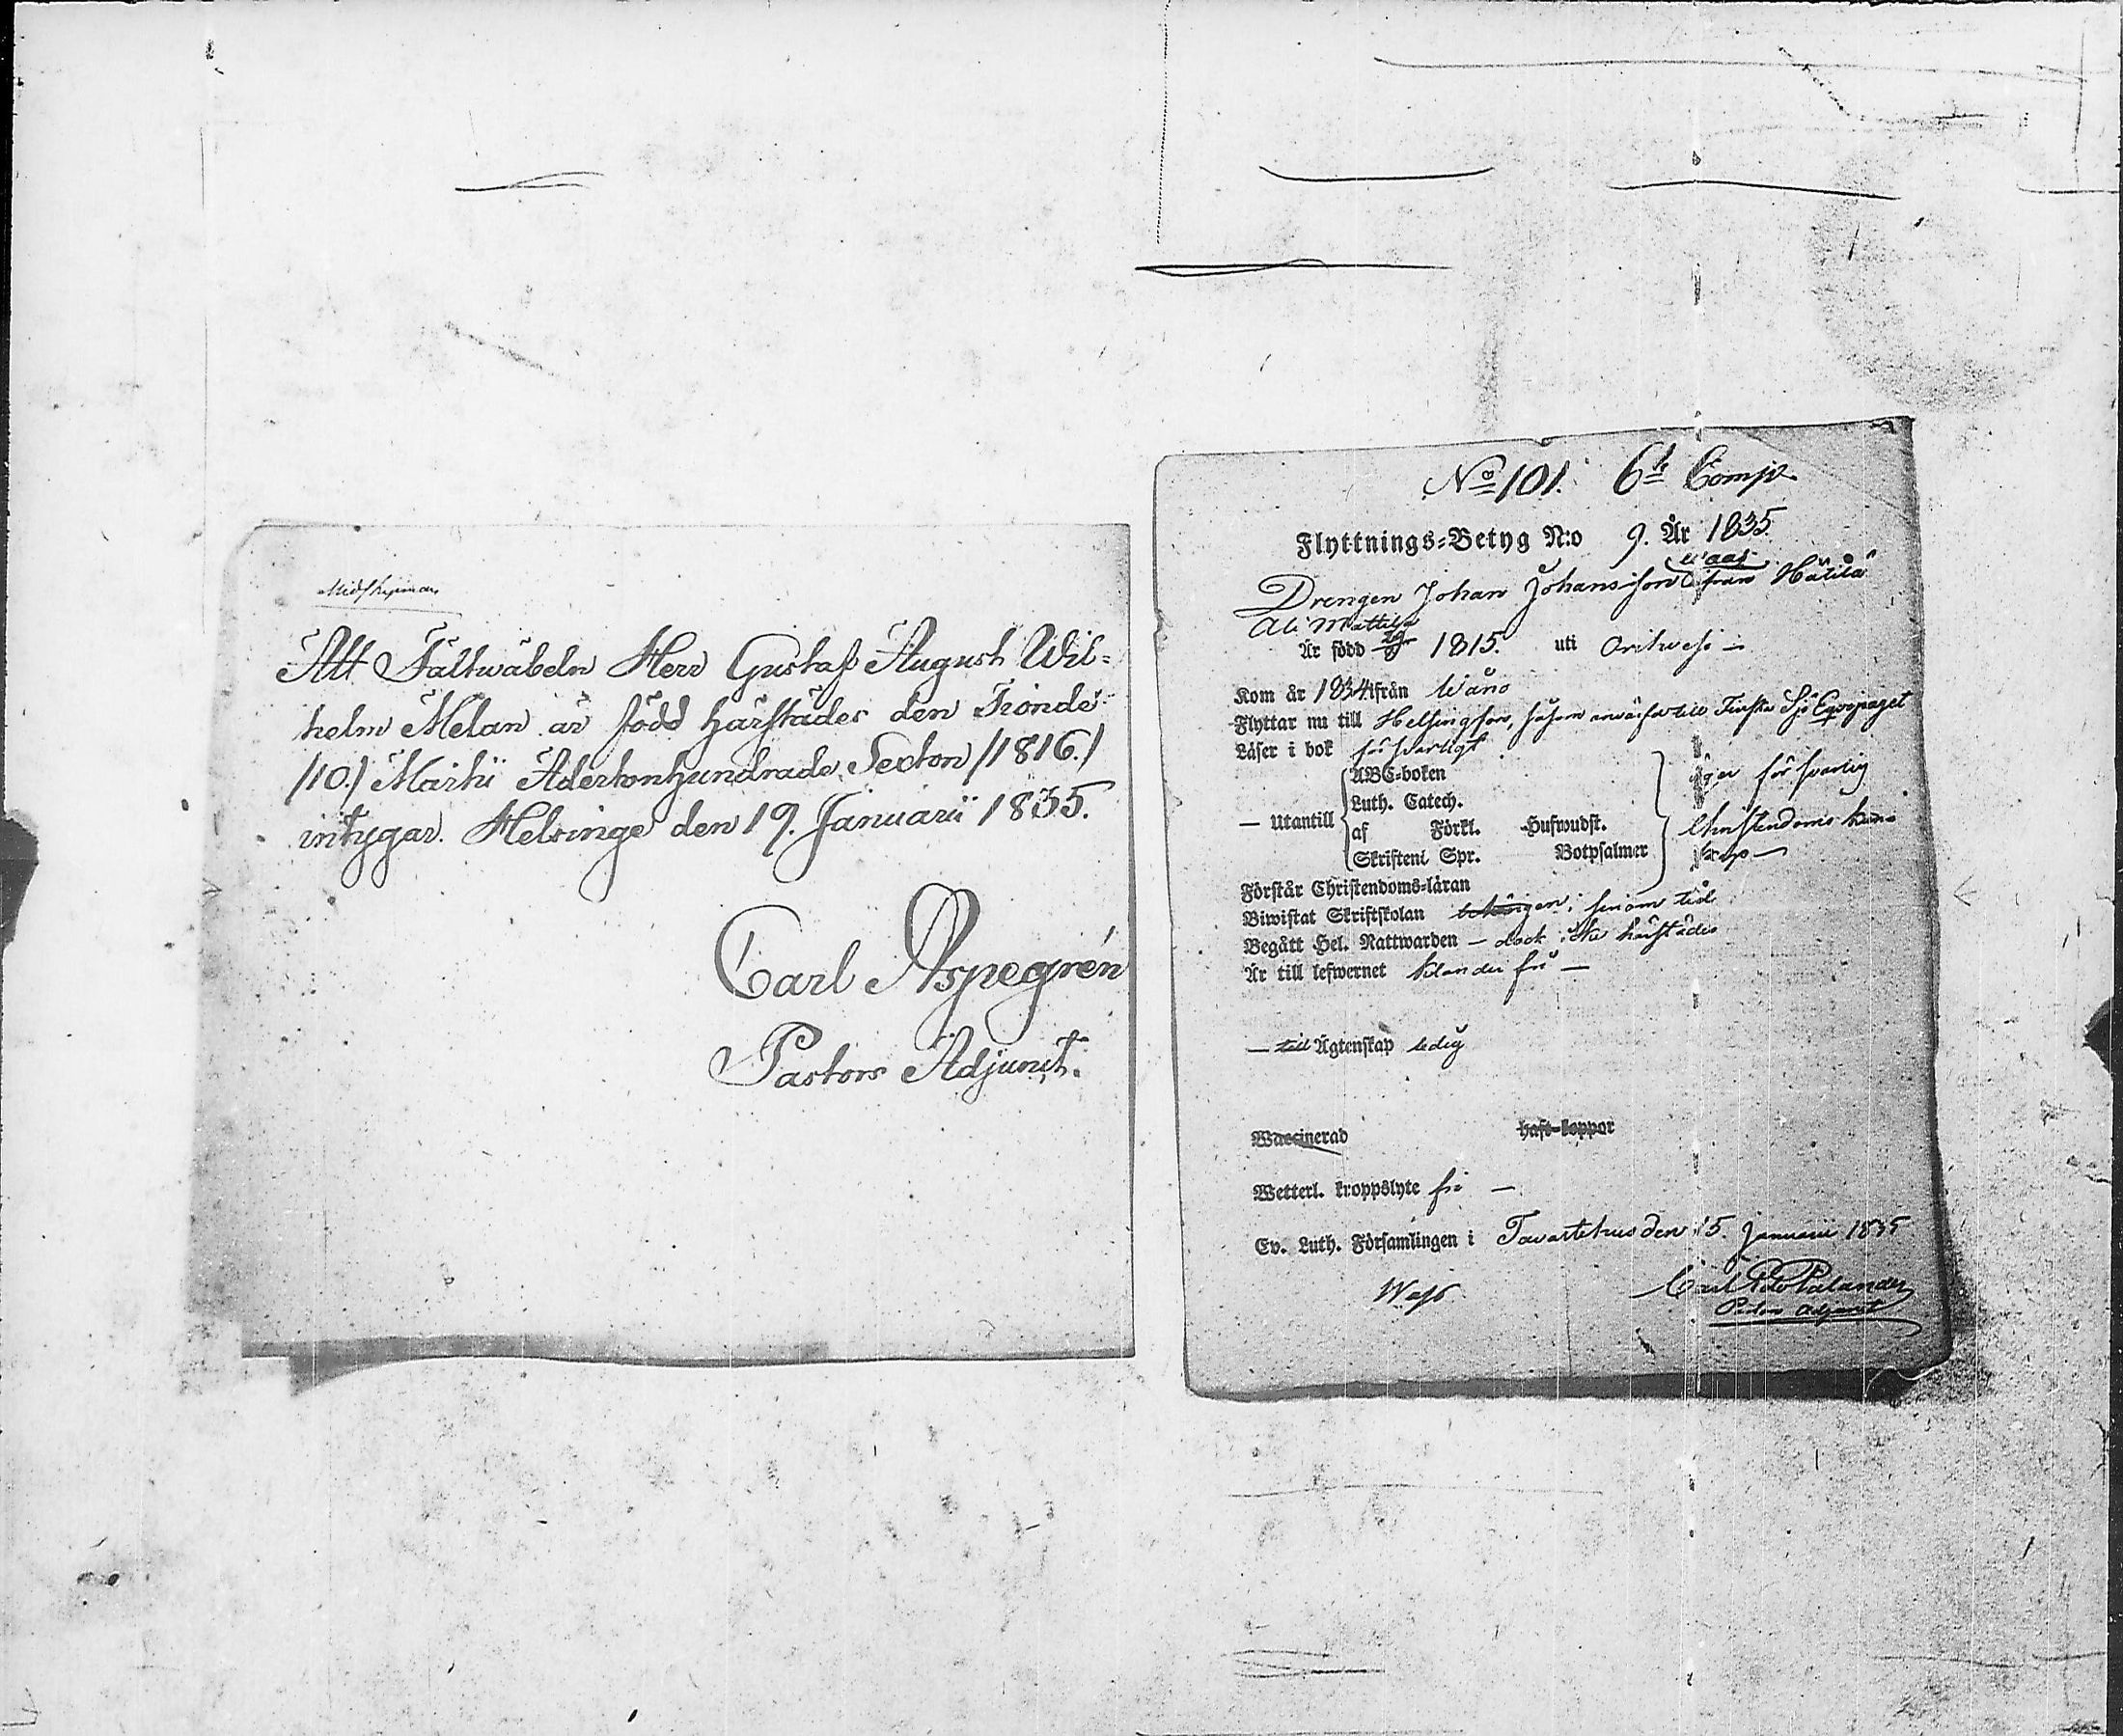 Midshipman
Att Fältwäbeln Herr Gustaf August Wil=
helm Melan är född härstädes den Tionde
/10./ Martii Adertonhundrade Sexton /1816./
intygar. Helsinge den 19. Januarii 1835.
Carl Aspegrén
Pastors Adjunct.
No 101. 6te Comp.
Flyttnings=Betyg N:o 9. År 1835.
Drengen Johan Johansson från Hätilä
Ali Mattila
Är född 1815. uti
Kom år 1834 ifrån Wånå
Flyttar nu till Helsingfors, såsom till Finska Sjö Eqvipaget
Läser i bok försvarligt
ABC=boken
Luth. Catech.
— Utantill af Förkl. Hufwudst.
Skriftenl Spr. Botpsalmer
äger försvarlig
Christendoms kun=
skap —
Förstår Christendoms=läran
Biwistat Skriftskolan i sinom tid
Begått Hel. Nattwarden — dock icke härstädes
Är till lefwernet klander fri —
— till Ägtenskap ledig
Waccinerad haft koppor
Wetterl. kroppslyte fri —
Ev. Luth. Församlingen i Tavastehus den 15. Januarii 1835
Carl Palander
Pastors Adjunct